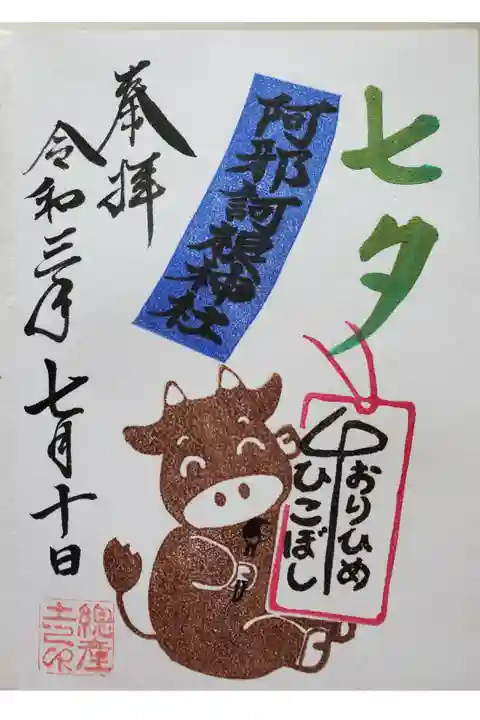 七夕
阿邪訶根神社
奉拝
令和三年七月十日
おりひめ
ひこぼし
總産
土印